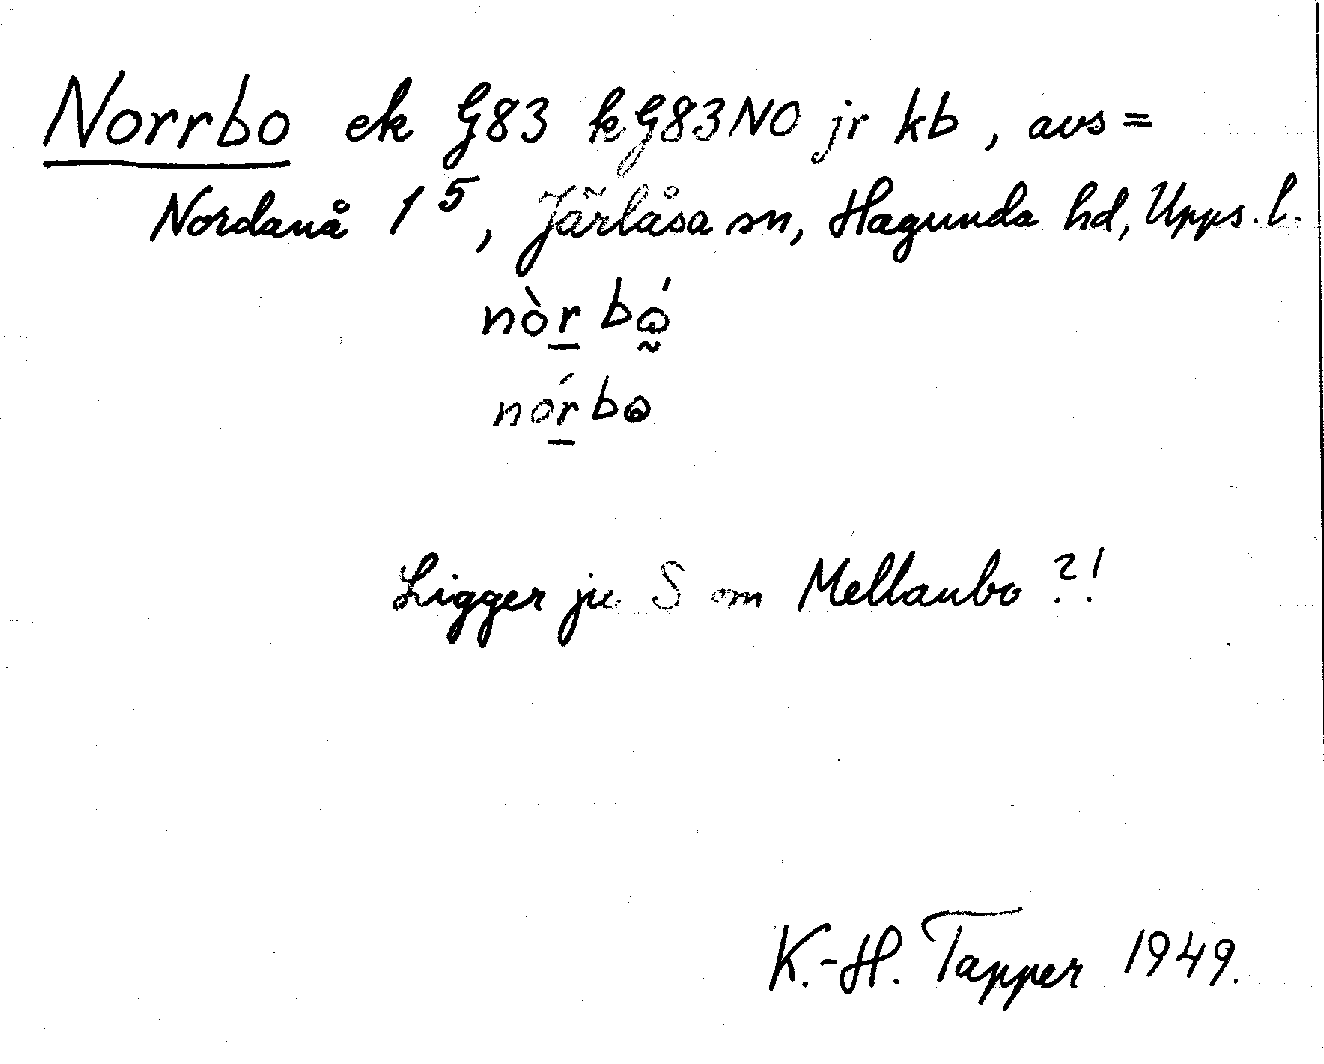 Norrbo ek G83 kG83NO jr kb, avs =
Nordanå 1⁵, Järlåsa sn, Hagunda hd, Upps. l.
Ligger ju S om Mellanbo ?!
K.-H. Tapper 1949.